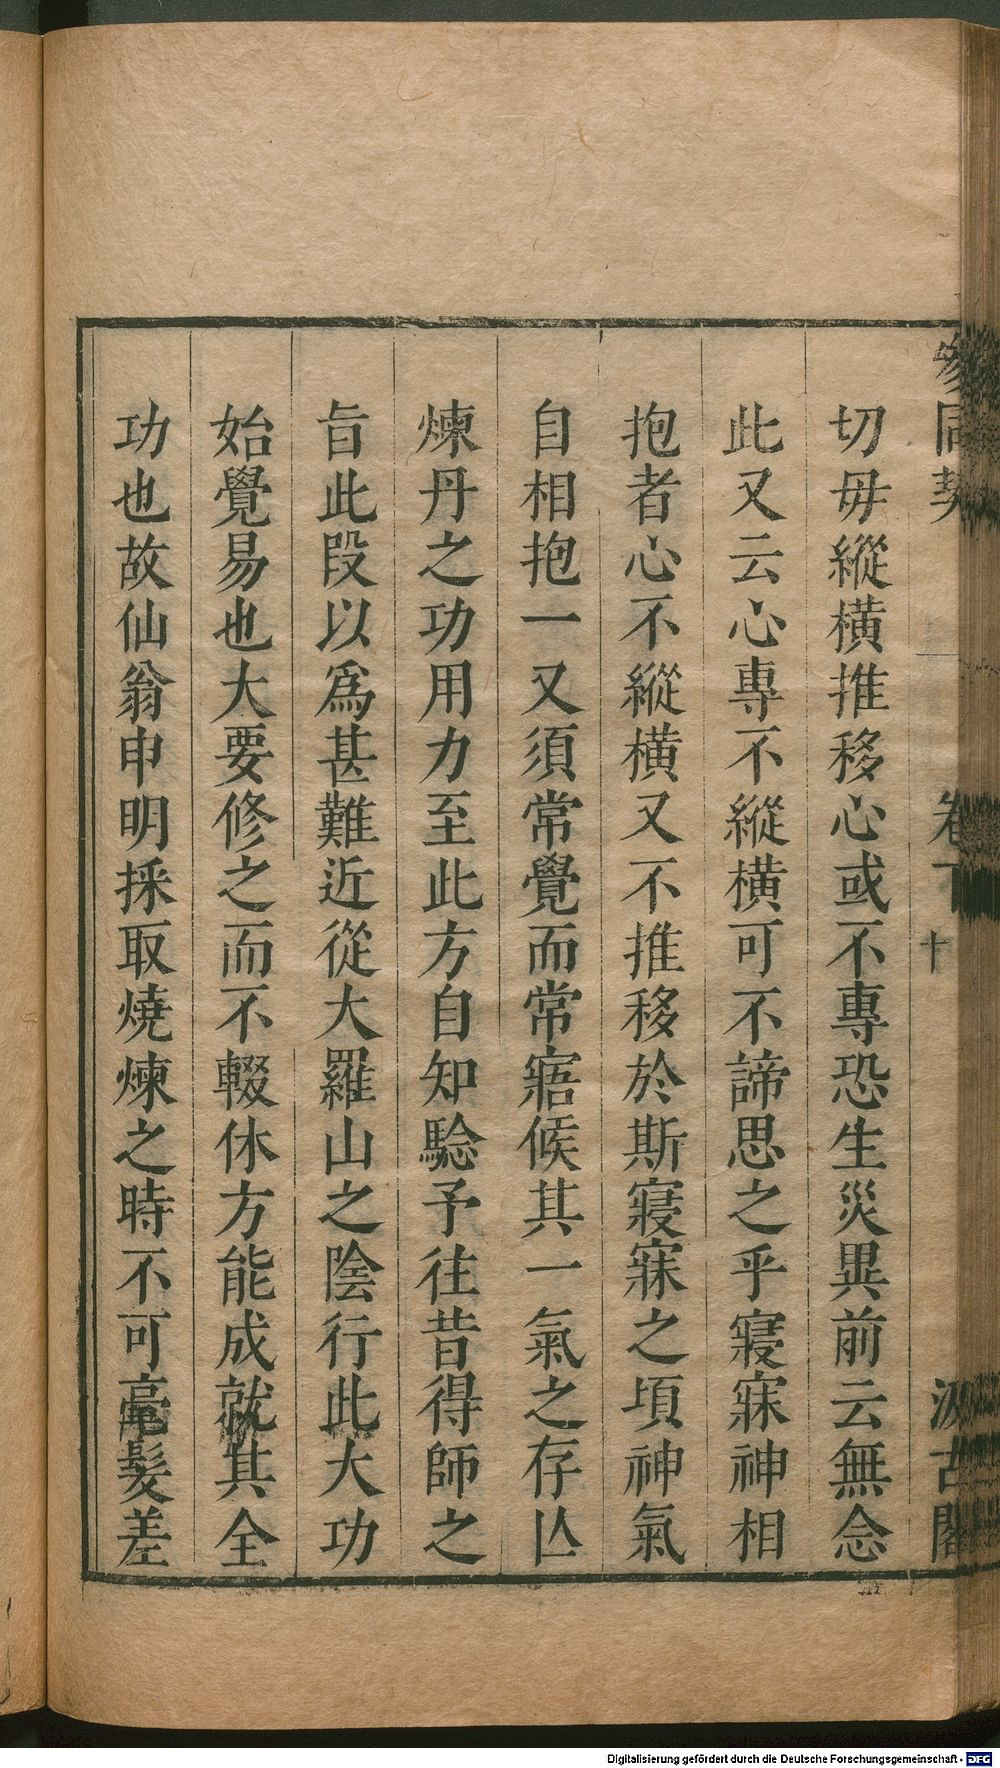 參同契 卷下 十 汲古閣
切毋縱橫推移心或不專恐生災異前云無念
此又云心專不縱橫可不諦思之乎寢寐神相
抱者心不縱橫又不推移於斯寢寐之頃神氣
自相抱一又須常覺而常寤候其一氣之存亾
煉丹之功用力至此方自知騐予往昔得師之
旨此段以爲甚難近從大羅山之陰行此大功
始覺易也大要修之而不輟休方能成就其全
功也故仙翁申明採取燒煉之時不可毫髮差
Digitalisierung gefördert durch die Deutsche Forschungsgemeinschaft - DFG